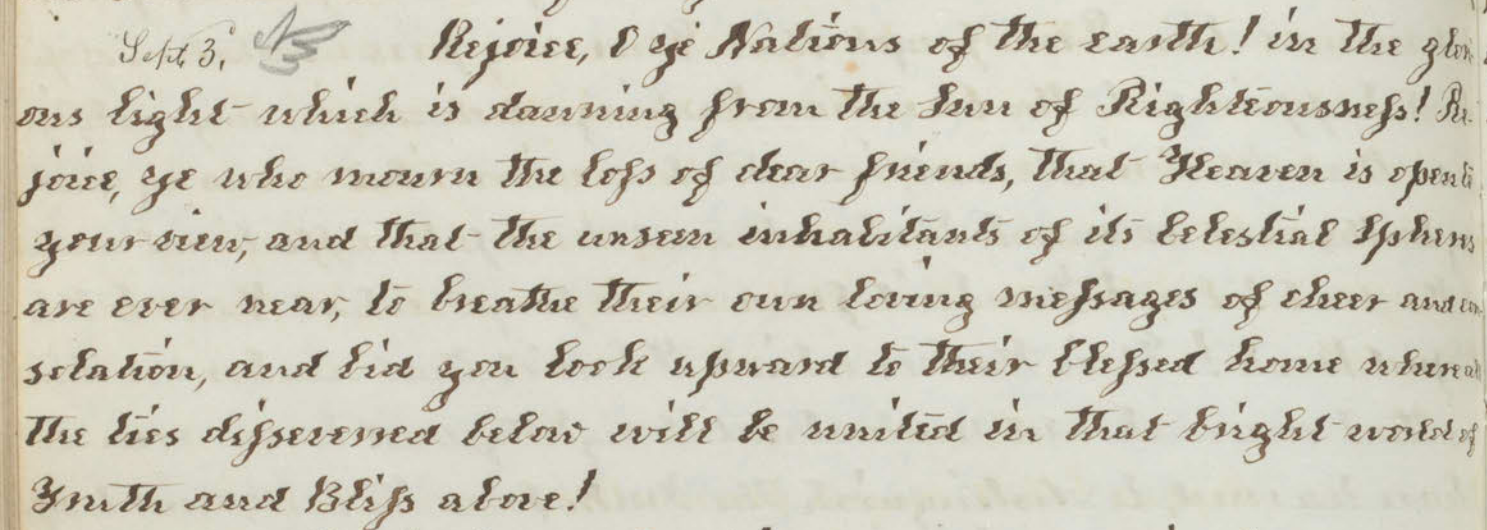 Sept 3. Rejoice, O ye Nations of the earth! in the glori
ous light which is dawning from the Sun of Righteousness! Re-
joice, ye who mourn the loss of dear friends, that Heaven is open to
your view, and that the unseen inhabitants of its Celestial Spheres
are ever near, to breathe their own loving messages of cheer and con
solation, and bid you look upward to their blessed home where all
the ties dissevered below will be united in that bright world of
Truth and Bliss above!